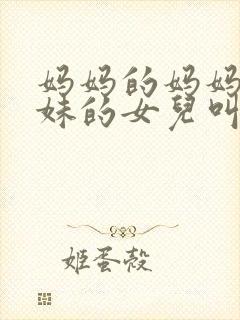 妈妈的妈妈
妹的女兒叫
姬蛋殼